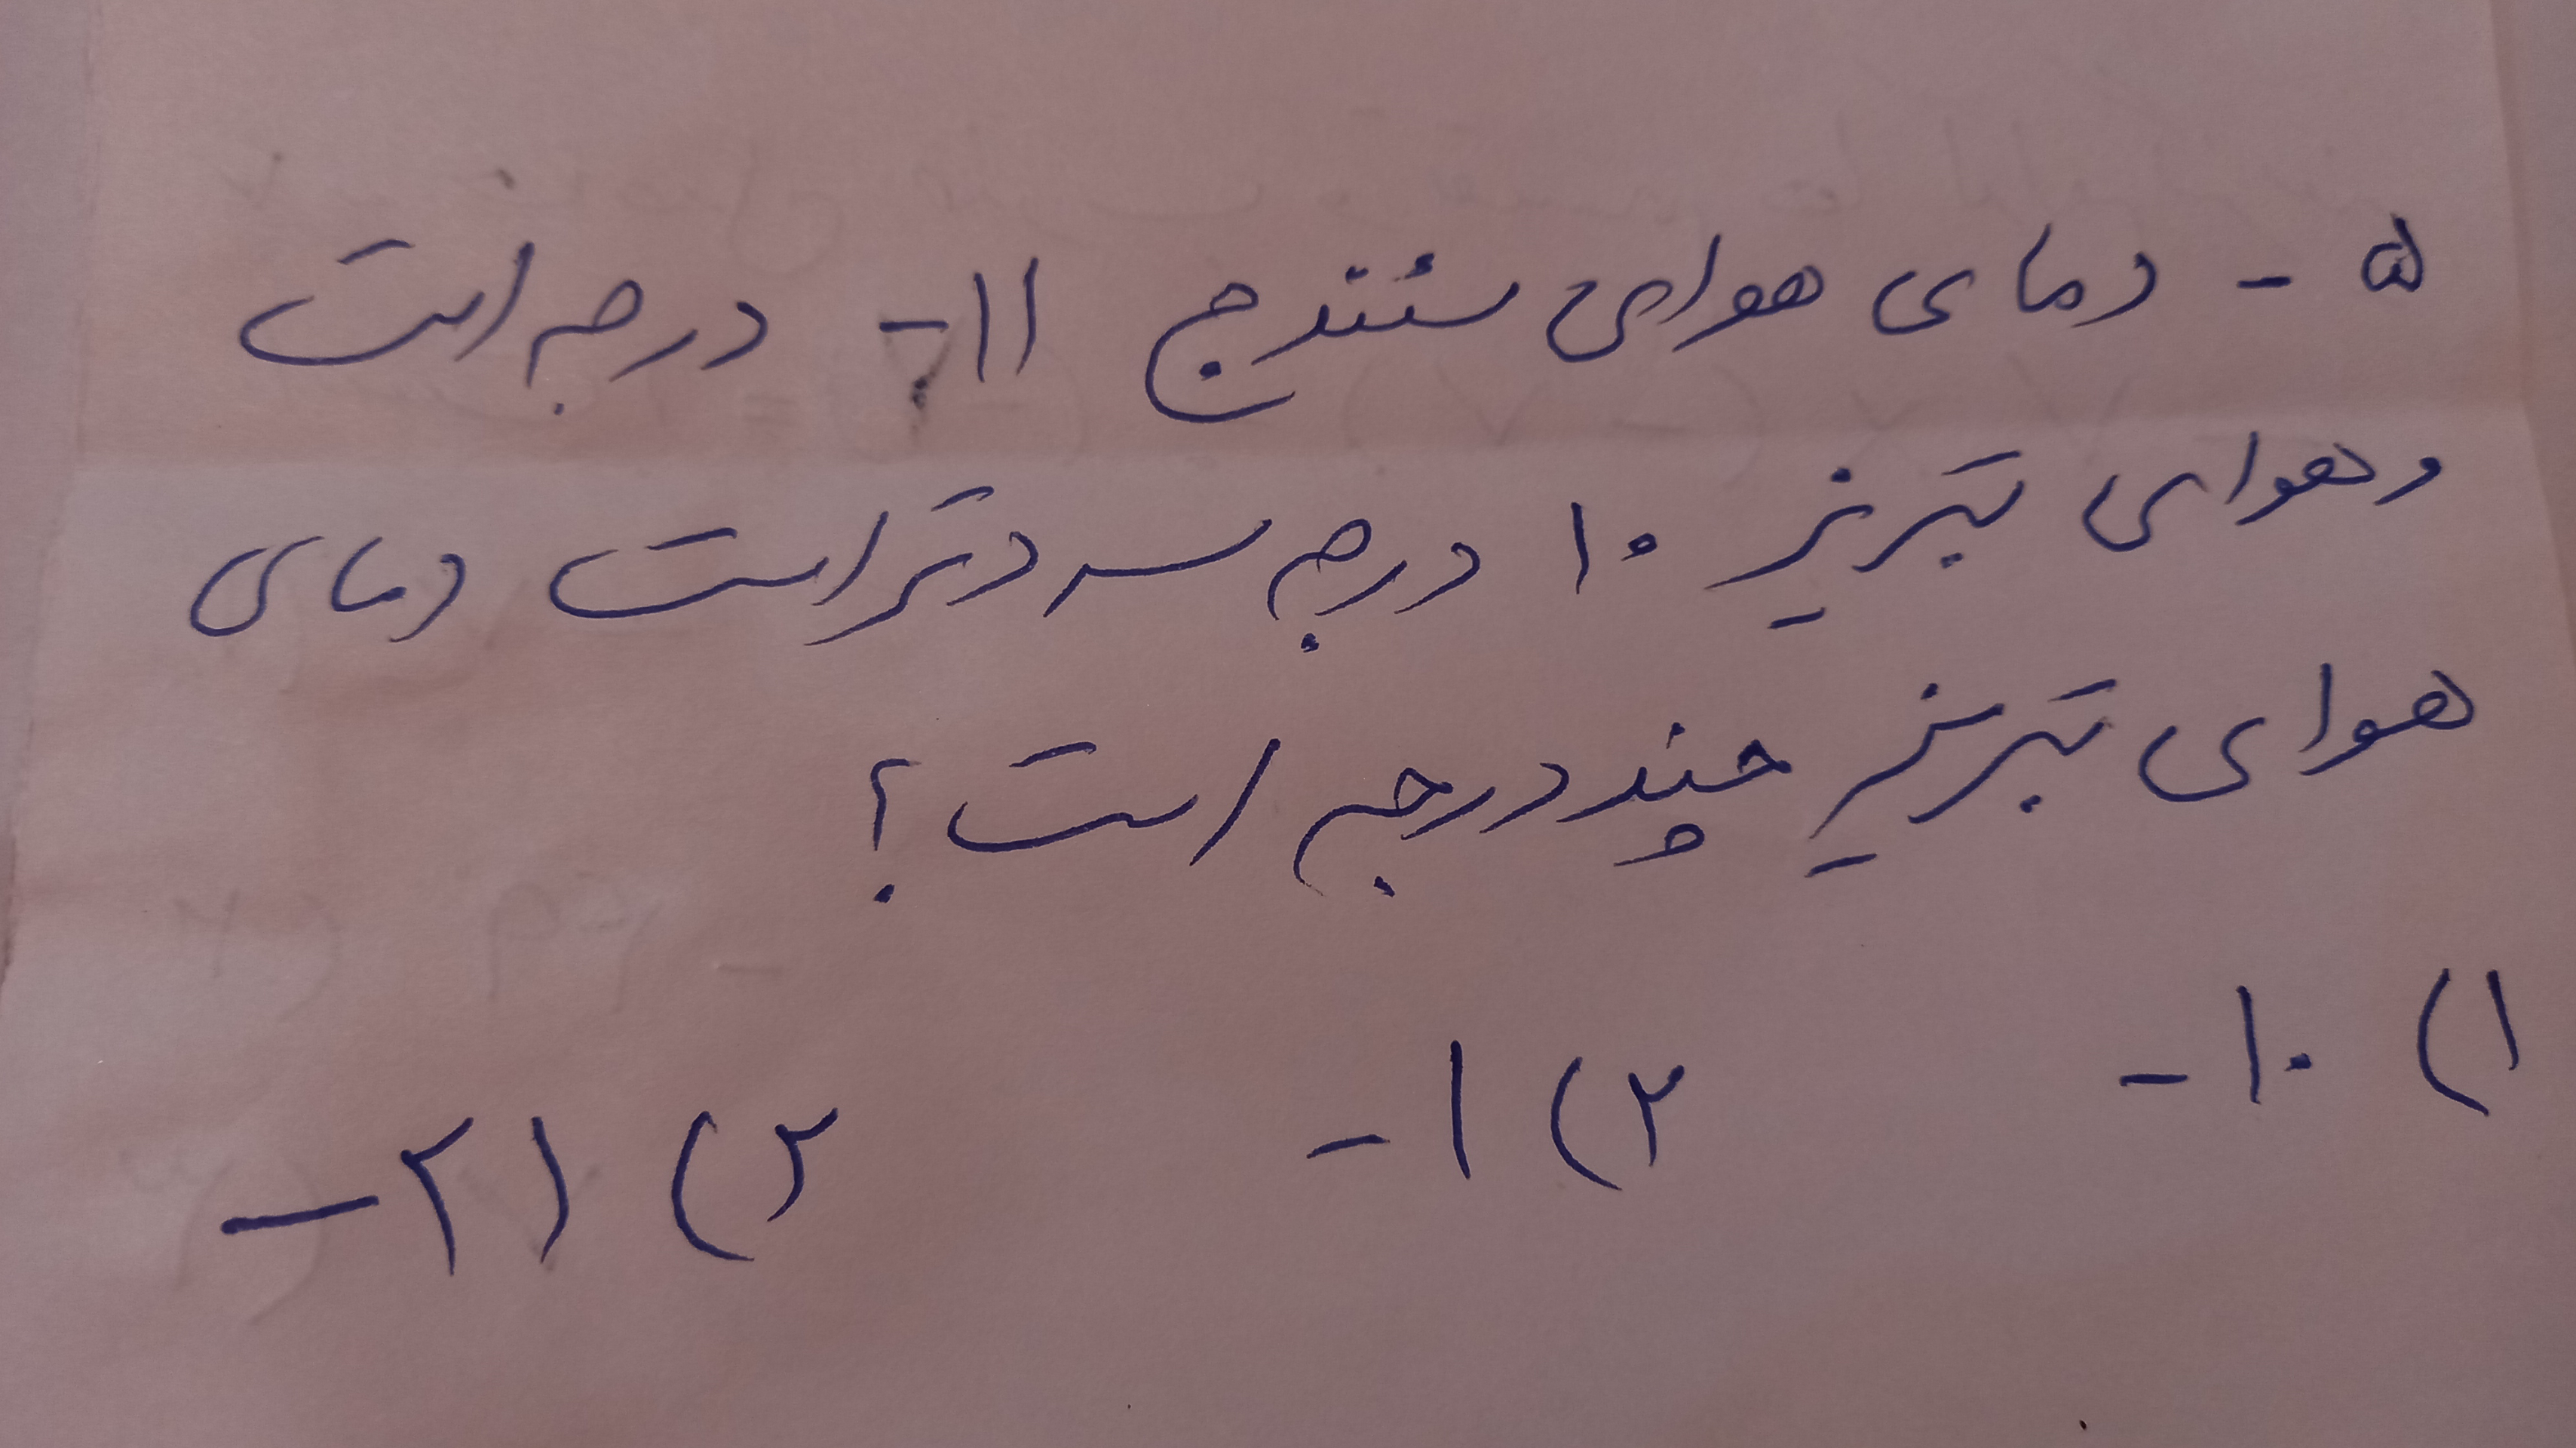 ۵ - دمای هوای سنندج ۱۱- درجه است
و هوای تبریز ۱۰ درجه سردتر است دمای
هوای تبریز چند درجه است؟
۱) ۱۰- ۲) ۱- ۳) ۲۱-